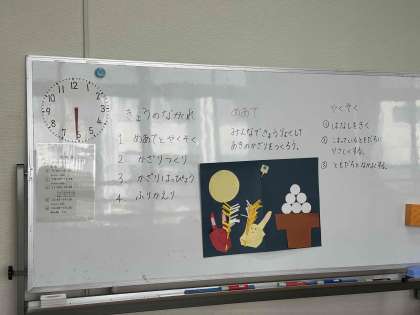 きょうのながれ
1 めあてとやくそく
2 かざりづくり
3 かざりはっぴょう
4 ふりかえり
めあて
みんなできょうりょくして
あきのかざりをつくろう。
やくそく
① はなしをきく
② こまっているともだちに
やさしくする。
③ ともだちとなかよくする。
12
1
2
3
4
5
6
7
8
9
10
11